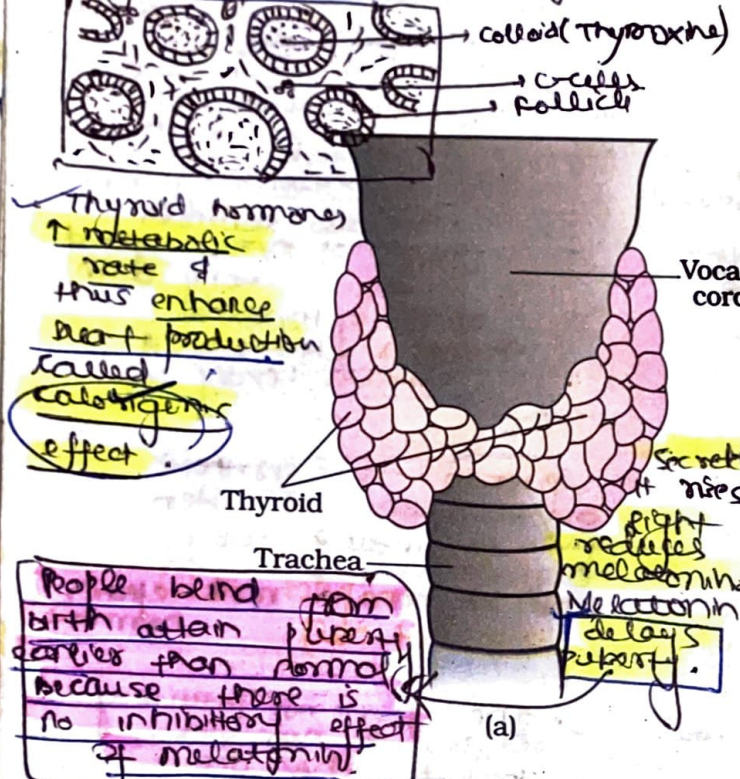 colloid (Thyroxine)
c-cells
Follicle
Thyroid hormones
↑ metabolic
rate &
thus enhance
heat production
called
calorigenic
effect.
Voca
cord
Thyroid
Trachea
Secret
It rises
light
reduces
melatonin
Melatonin
delays
puberty.
People blind from
birth attain puberty
earlier than normal
because there is
no inhibitory effect
of melatonin
(a)